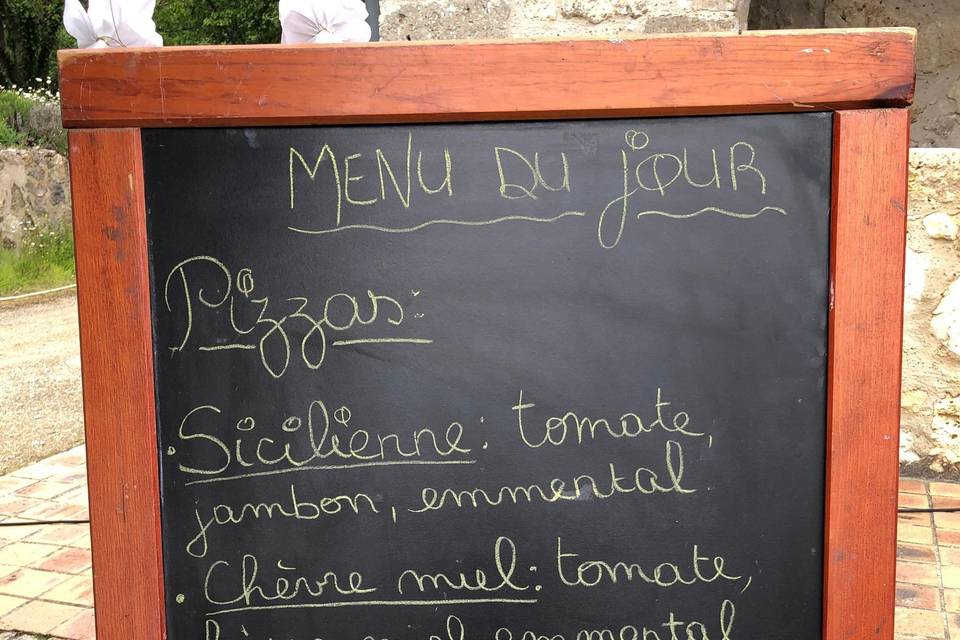 MENU DU JOUR
Pizzas:
• Sicilienne: tomate,
jambon, emmental
• Chèvre miel: tomate,
emmental